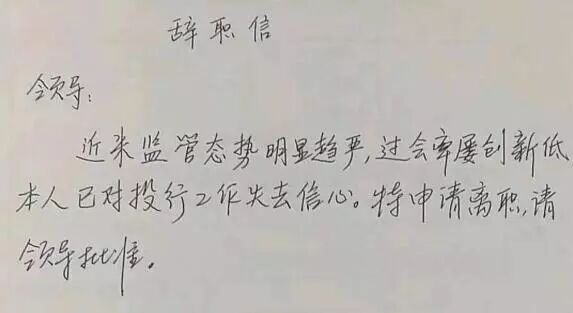 辞职信
领导:
近来监管态势明显趋严,过会率屡创新低
本人已对投行工作失去信心。特申请离职,请
领导批准。